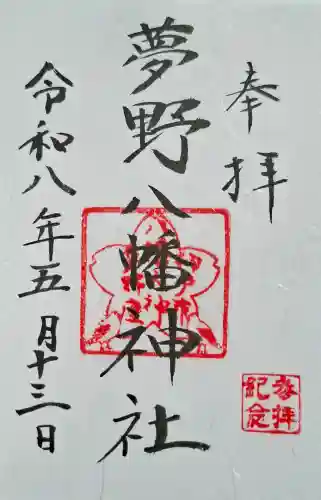 奉拝
夢野八幡神社
令和八年五月十三日
参拝
記念